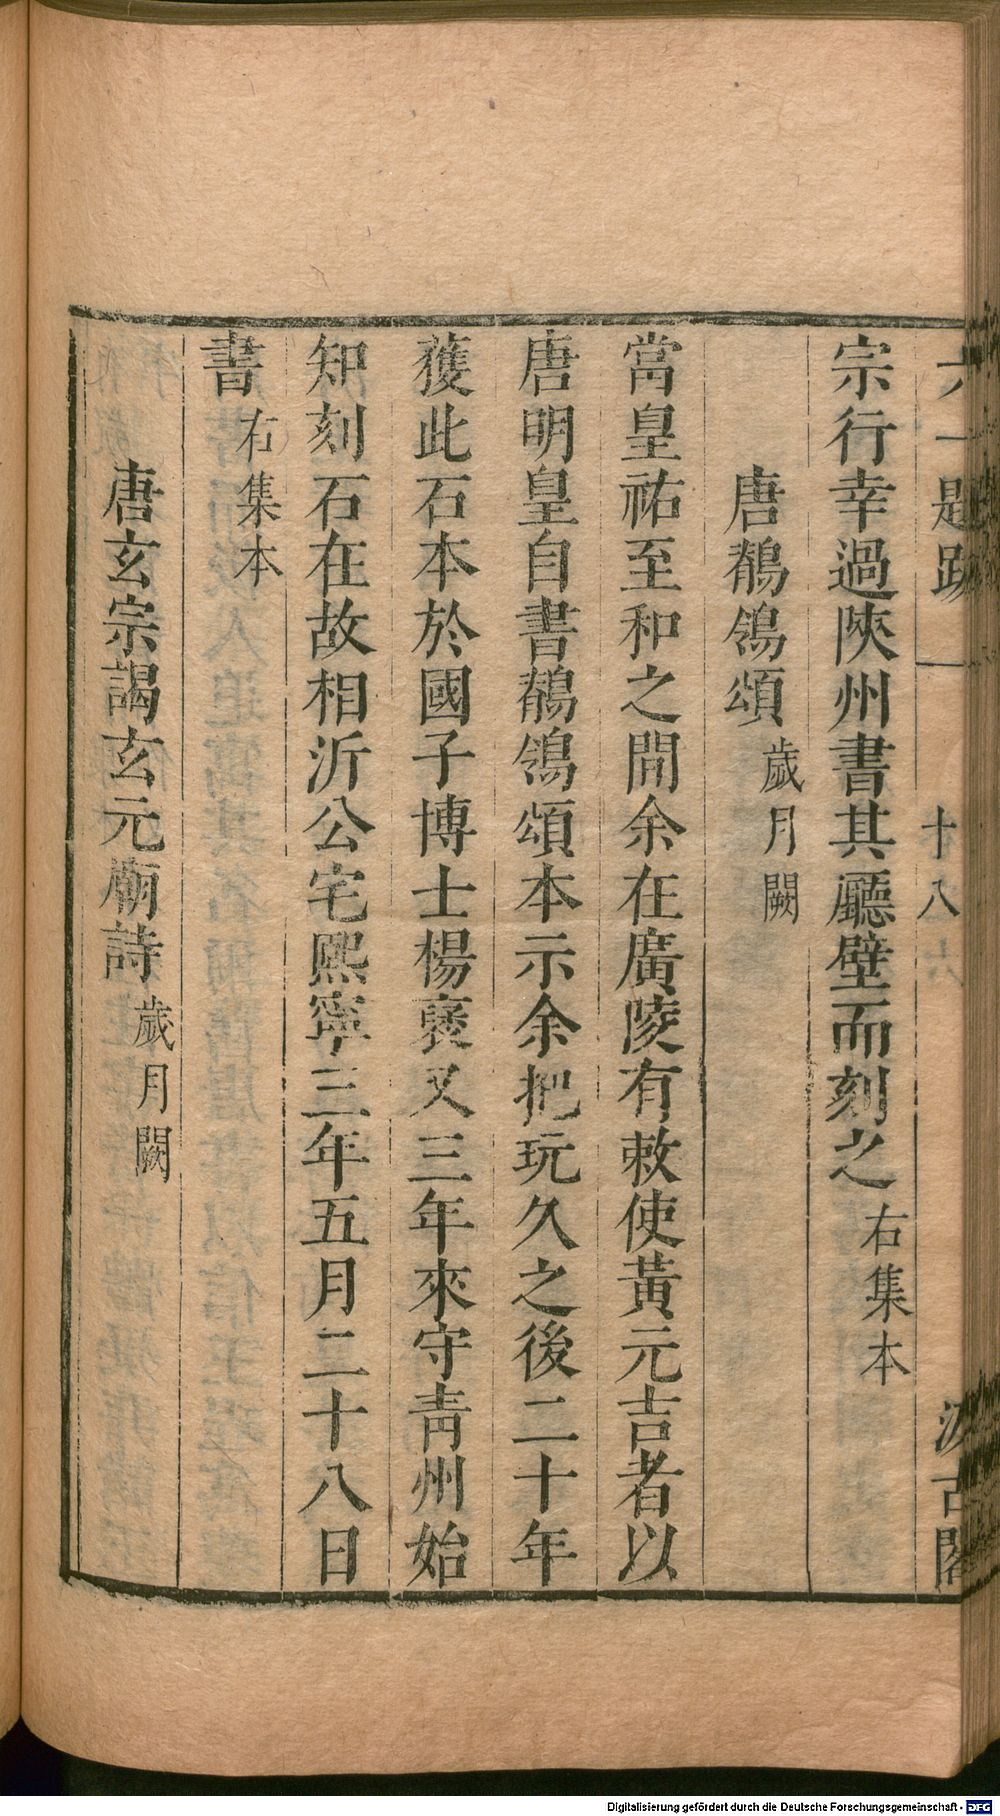 六一題跋
十八
汲古閣
宗行幸過陝州書其廳壁而刻之右集本
唐鶺鴒頌歲月闕
當皇祐至和之間余在廣陵有敕使黃元吉者以
唐明皇自書鶺鴒頌本示余把玩久之後二十年
獲此石本於國子博士楊褒又三年來守青州始
知刻石在故相沂公宅熙寧三年五月二十八日
書右集本
唐玄宗謁玄元廟詩歲月闕
Digitalisierung gefördert durch die Deutsche Forschungsgemeinschaft - DFG